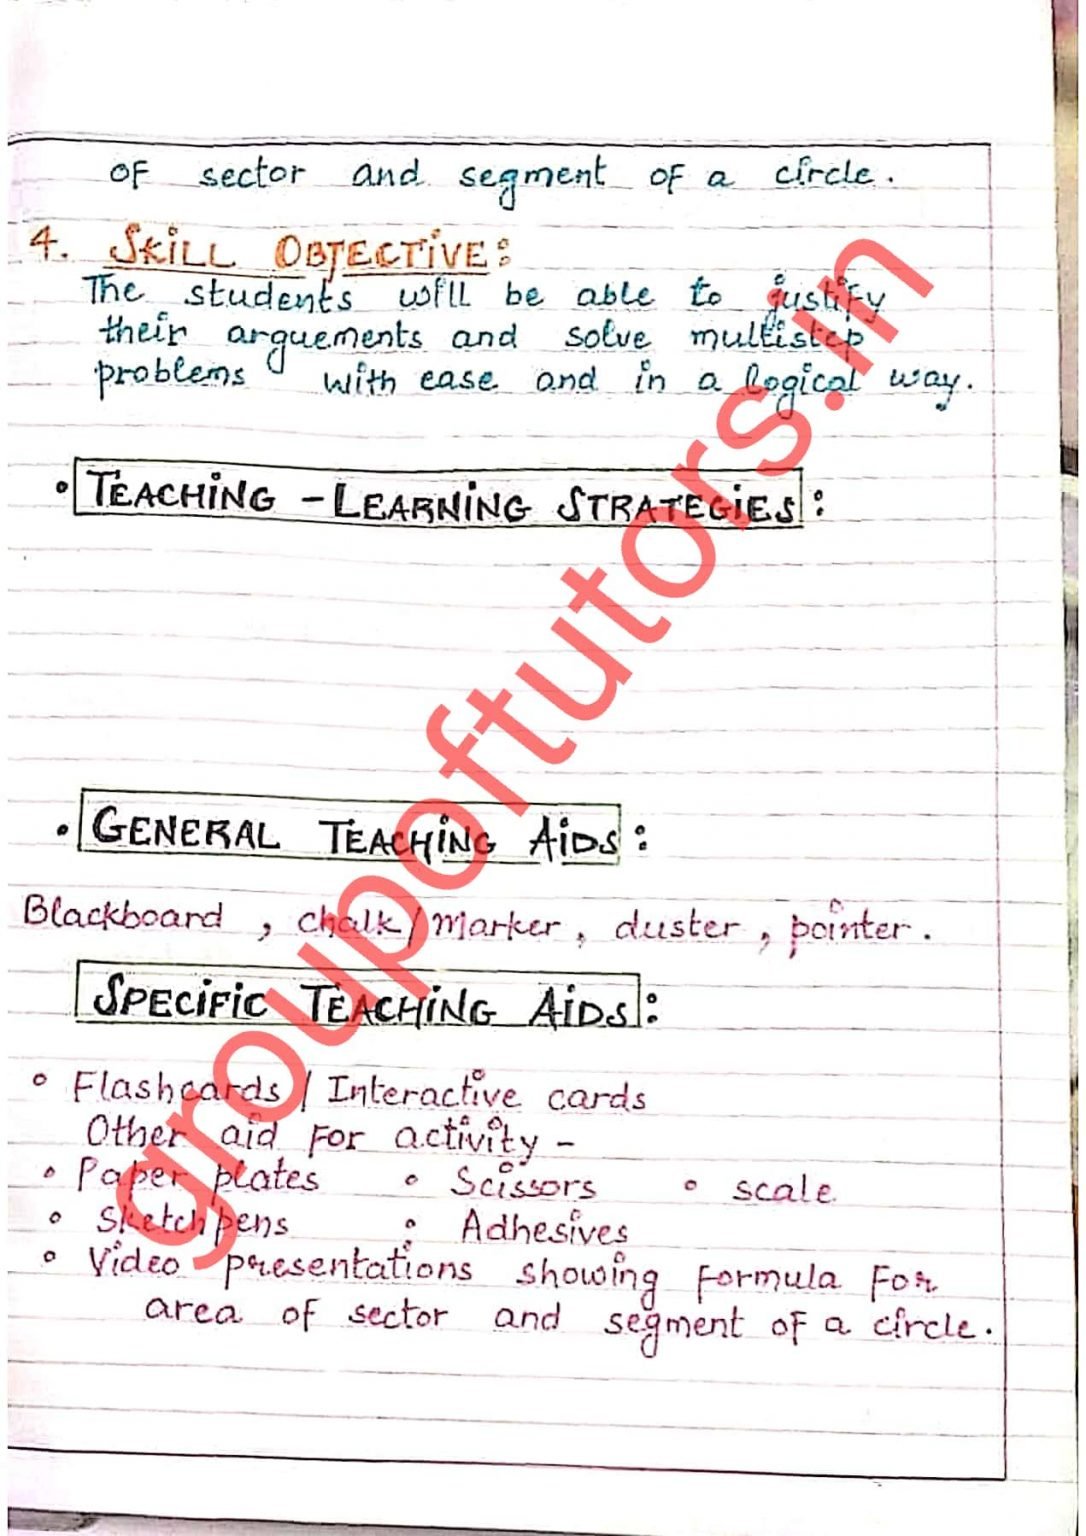 of sector and segment of a circle.
4. SKILL OBJECTIVE:
The students will be able to justify
their arguements and solve multistep
problems with ease and in a logical way.
• TEACHING - LEARNING STRATEGIES:
• GENERAL TEACHING AIDS:
Blackboard, chalk/marker, duster, pointer.
SPECIFIC TEACHING AIDS:
• Flashcards / Interactive cards
Other aid for activity -
• Paper plates • Scissors • scale
• Sketchpens • Adhesives
• Video presentations showing formula for
area of sector and segment of a circle.
groupoftutors.in